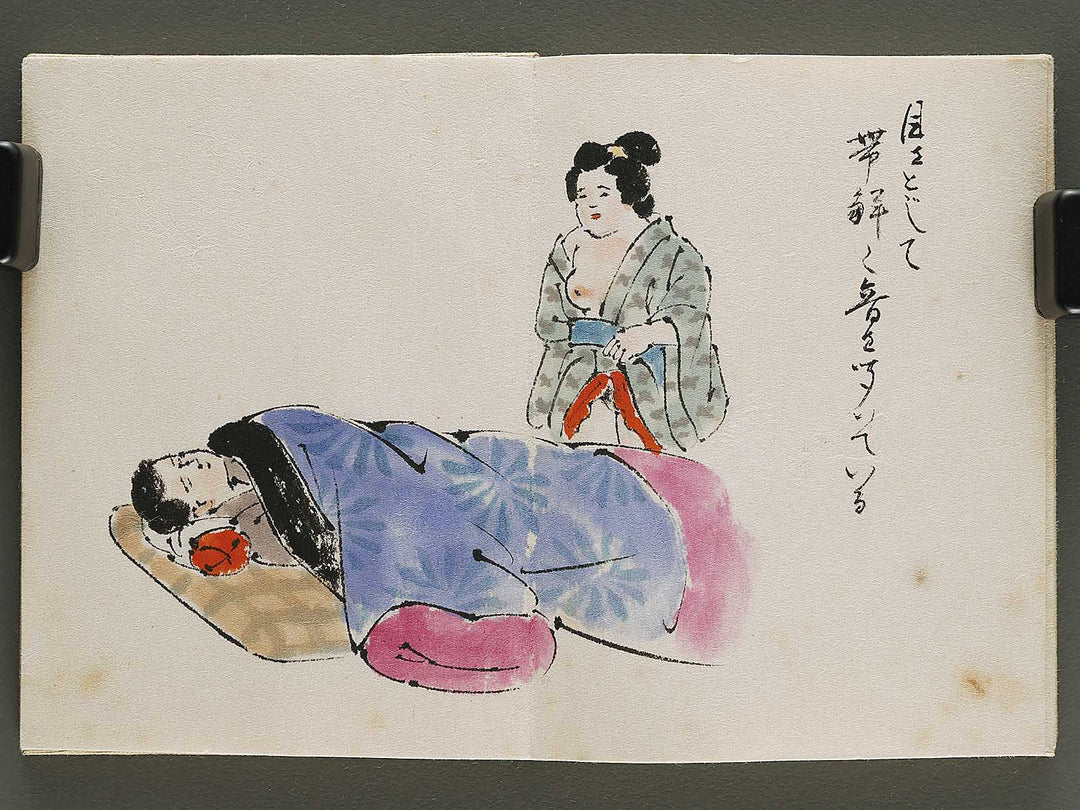 目をとじて
帯解く音を聞いている